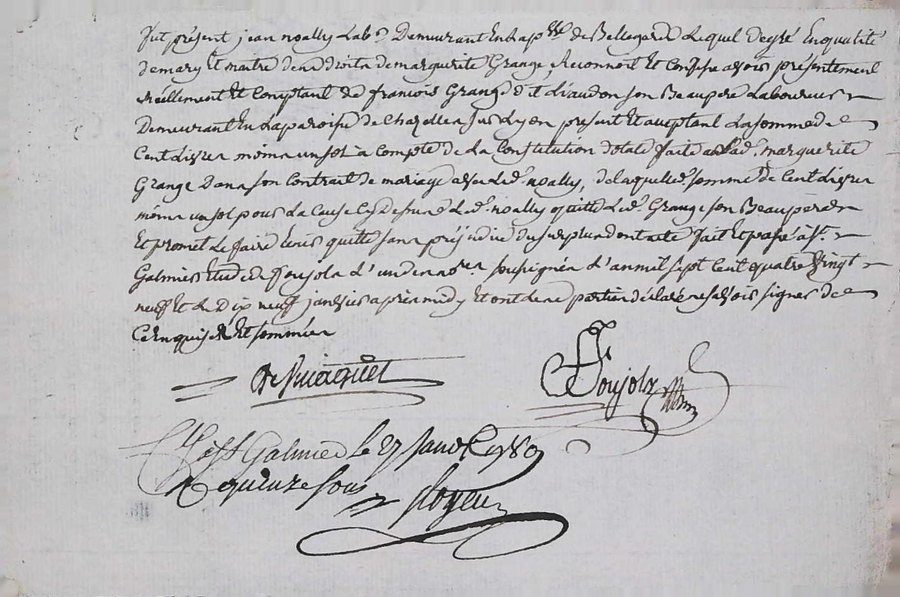 fut présent jean noally Labr. Demeurant En La psse. de Bellegarde Lequel de gré En qualité
de mary Et maitre des droits de marguerite Grange, Reconnoit Et Confesse avoir présentement
réellement Et Comptant de francois Grange dit Liaudon son Beaupere Laboureur
Demeurant En La paroisse de Chazelles sur Lyon présent Et acceptant La somme de
Cent dix moins un sol à Compte de La Constitution dotale faite à La de. marguerite
Grange Dans son Contrat de mariage avec Le d. noally, de laquelle somme de Cent dix
moins un sol pour La Cause Cy Dessus Le d. noally quitte Le d. Grange son Beaupere
Et promet Le faire tenir quitte sans préjudice du surplus dont acte fait Et passé à St.
Galmier Etude de Poujola L'un des nores. soussignés L'an mil sept Cent quatre Vingt
neuf Et Le Dix neuf janvier après midy Et ont les parties déclaré ne savoir signer de
Ce Enquis Et sommées
Poujola
à St Galmier le 27 janv. 1789
R quinze sous